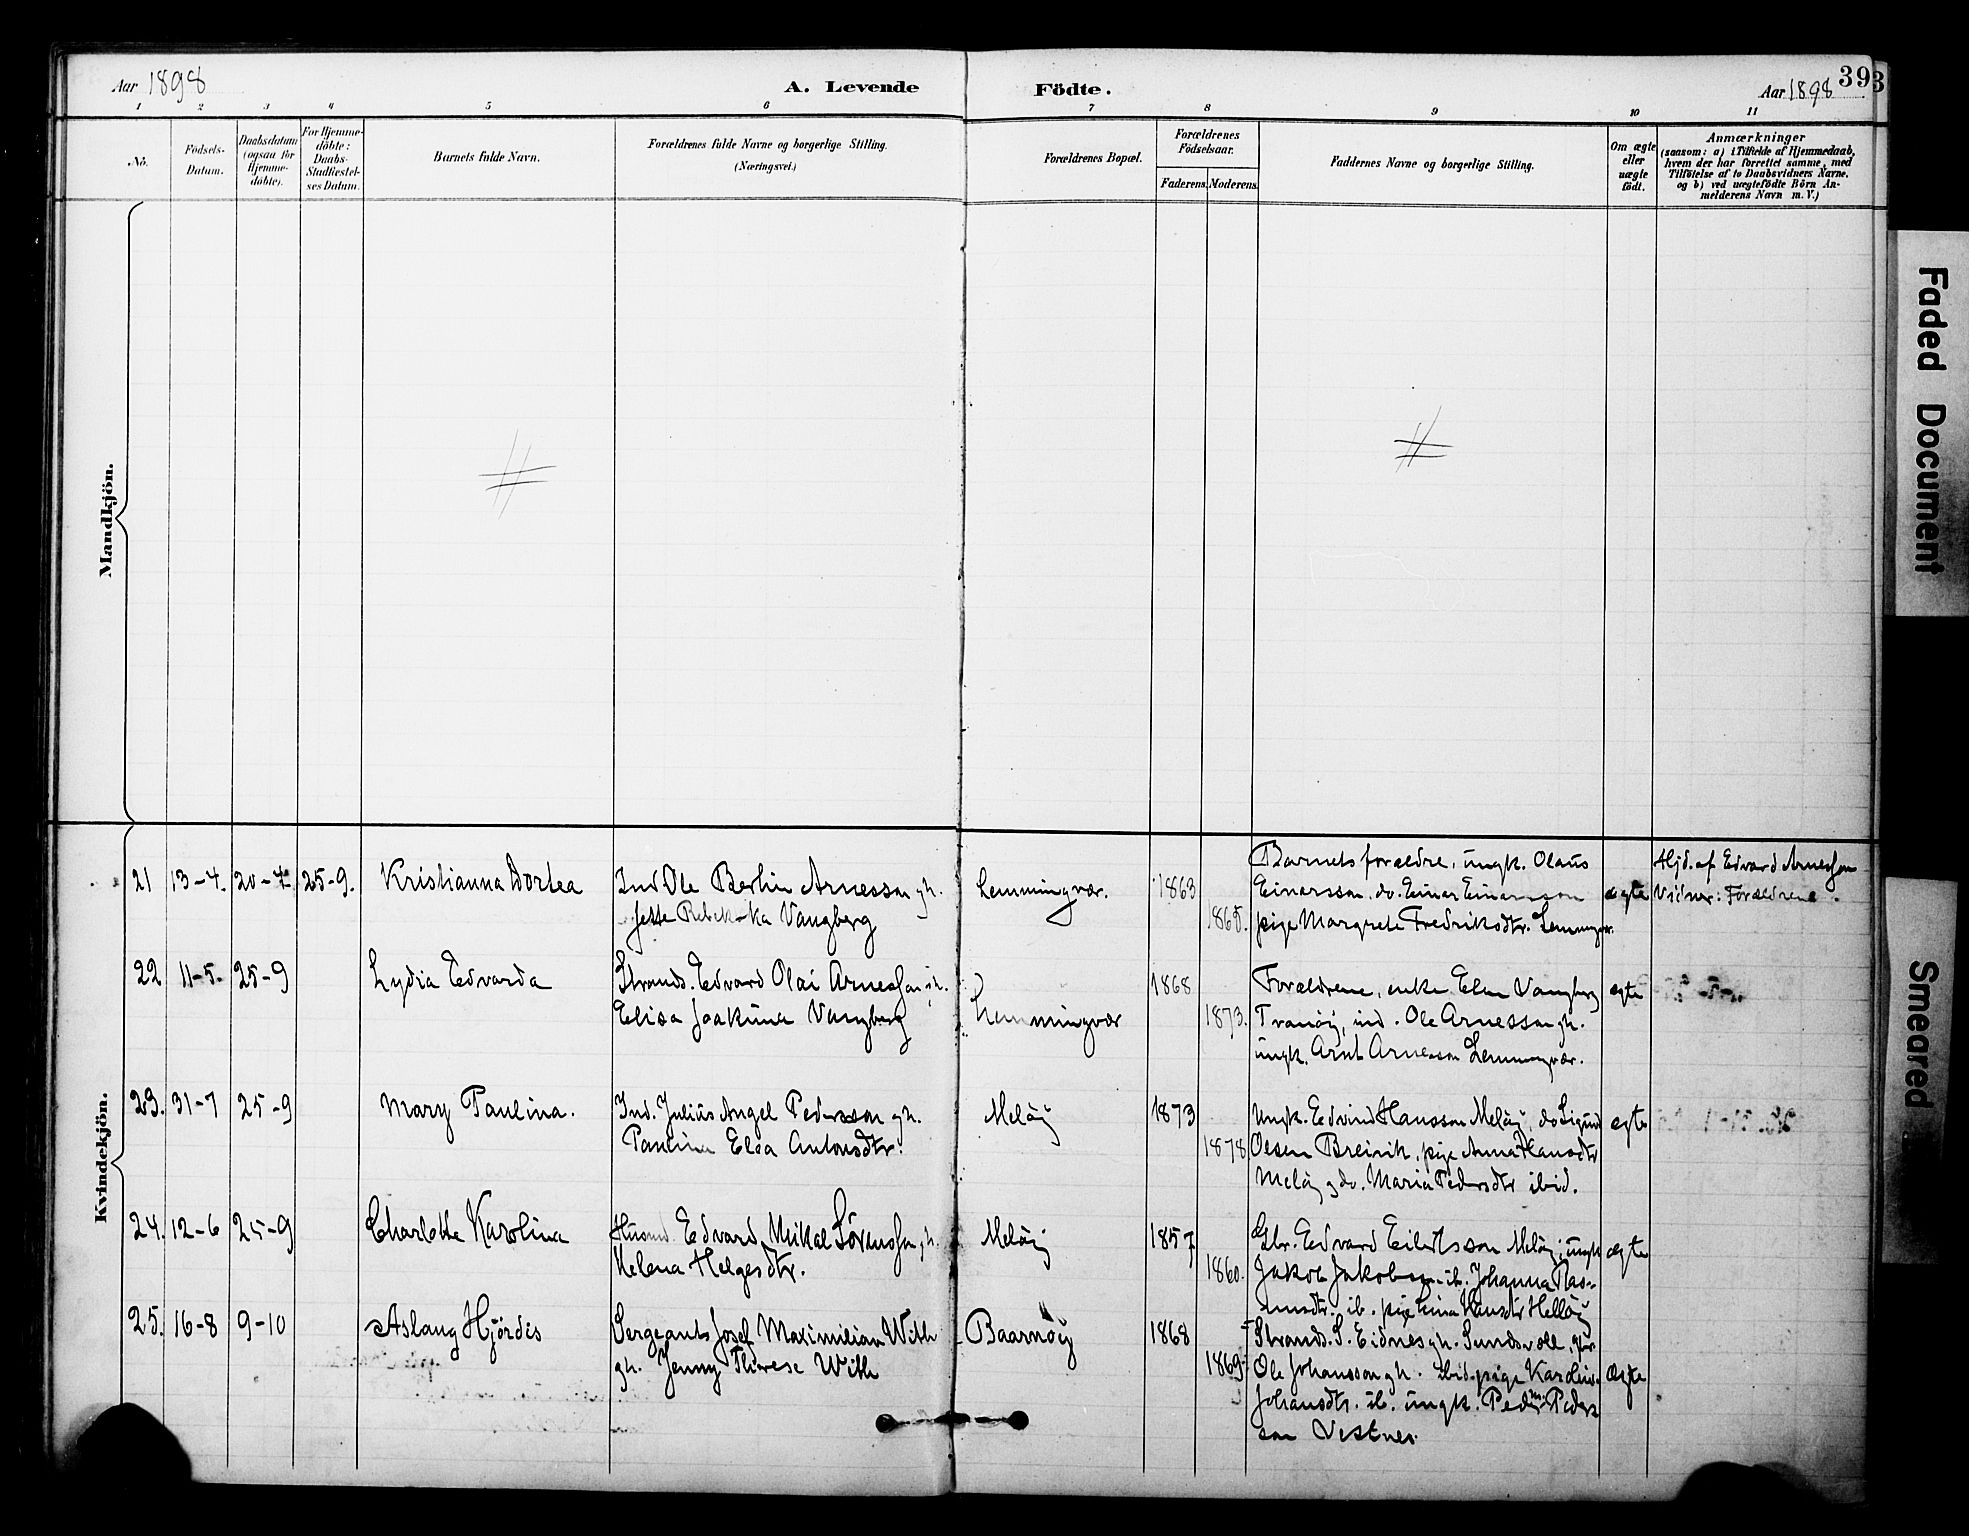 Aar 1898
A. Levende Födte.
Aar 1898
393
1 2 3 4 5 6 7 8 9 10 11
Nô.
Födsels-
Datum.
Daabsdatum
(ogsaa för
Hjemme-
döbte).
For Hjemme-
döbte:
Daabs-
Stadfæstel-
ses Datum.
Barnets fulde Navn.
Forældrenes fulde Navne og borgerlige Stilling.
(Næringsvei.)
Forældrenes Bopæl.
Forældrenes
Födselsaar.
Faderens.
Moderens.
Faddernes Navne og borgerlige Stilling.
Om ægte
eller
uægte
födt.
Anmærkninger
(saasom: a) i Tilfælde af Hjemmedaab,
hvem der har forrettet samme, med
Tilföielse af to Daabsvidners Navne.
og b) ved uægtefödte Börn An-
melderens Navn m. V.)
Mandkjön.
Kvindekjön.
21 13-4. 20-4. 25-9. Kristianna Dortea
Ind. Ole Berlin Arnesson gh.
Rebekka Vangberg
Lemmingvær.
1863
1865.
Barnets forældre, ungk. Olaus
Einarsson, do. Einar Einarsson
pige Margrete Fredriksdtr. Lemmingvær.
ægte
Hjd. af Edvard Arnesson
Vidner: Forældrene.
22 11-5. 25-9 Lydia Edvarda
Strands. Edvard Olai Arnesson gh.
Elisa Joakima Vangberg
Lemmingvær
1868
1873.
Forældrene, enke Elen Vangberg
Tranöy, ind. Ole Arnesson gh.
ungk. Arnt Arnesson Lemmingvær.
ægte
23. 31-7 25-9 Mary Paulina.
Ind. Julius Angel Pedersson gh.
Paulina Elsa Antonsdtr.
Melöy
1873
1878
Ungk. Edvind Hansson Melöy, do Sigurd
Olsen Breivik, pige Anna Hansdtr
Melöy g do. Maria Pedersdtr ibid.
ægte
24. 12-6 25-9 Charlotte Karolina
Husmd. Edvard Mikal Sörensson gh.
Helena Helgesdtr.
Melöy
1857
1860.
Gbr. Edvard Eilertsson Melöy, ungk
Jakob Jakobsen ib. Johanna Ras-
musdtr. ib. pige Hansdtr Hellöy
ægte
25. 16-8 9-10 Aslaug Hjördis
Sergeant Josef Maximilian With
gh. Jenny Therese With
Baarnöy
1868
1869.
Strands. S. Eidnes gh. Sundsvoll,
Ole Johansson gh. ibid. pige Karolin.
Johansdtr. ib. ungk. Peder M. Peders
son Vestnes.
ægte
Faded Document
Smeared